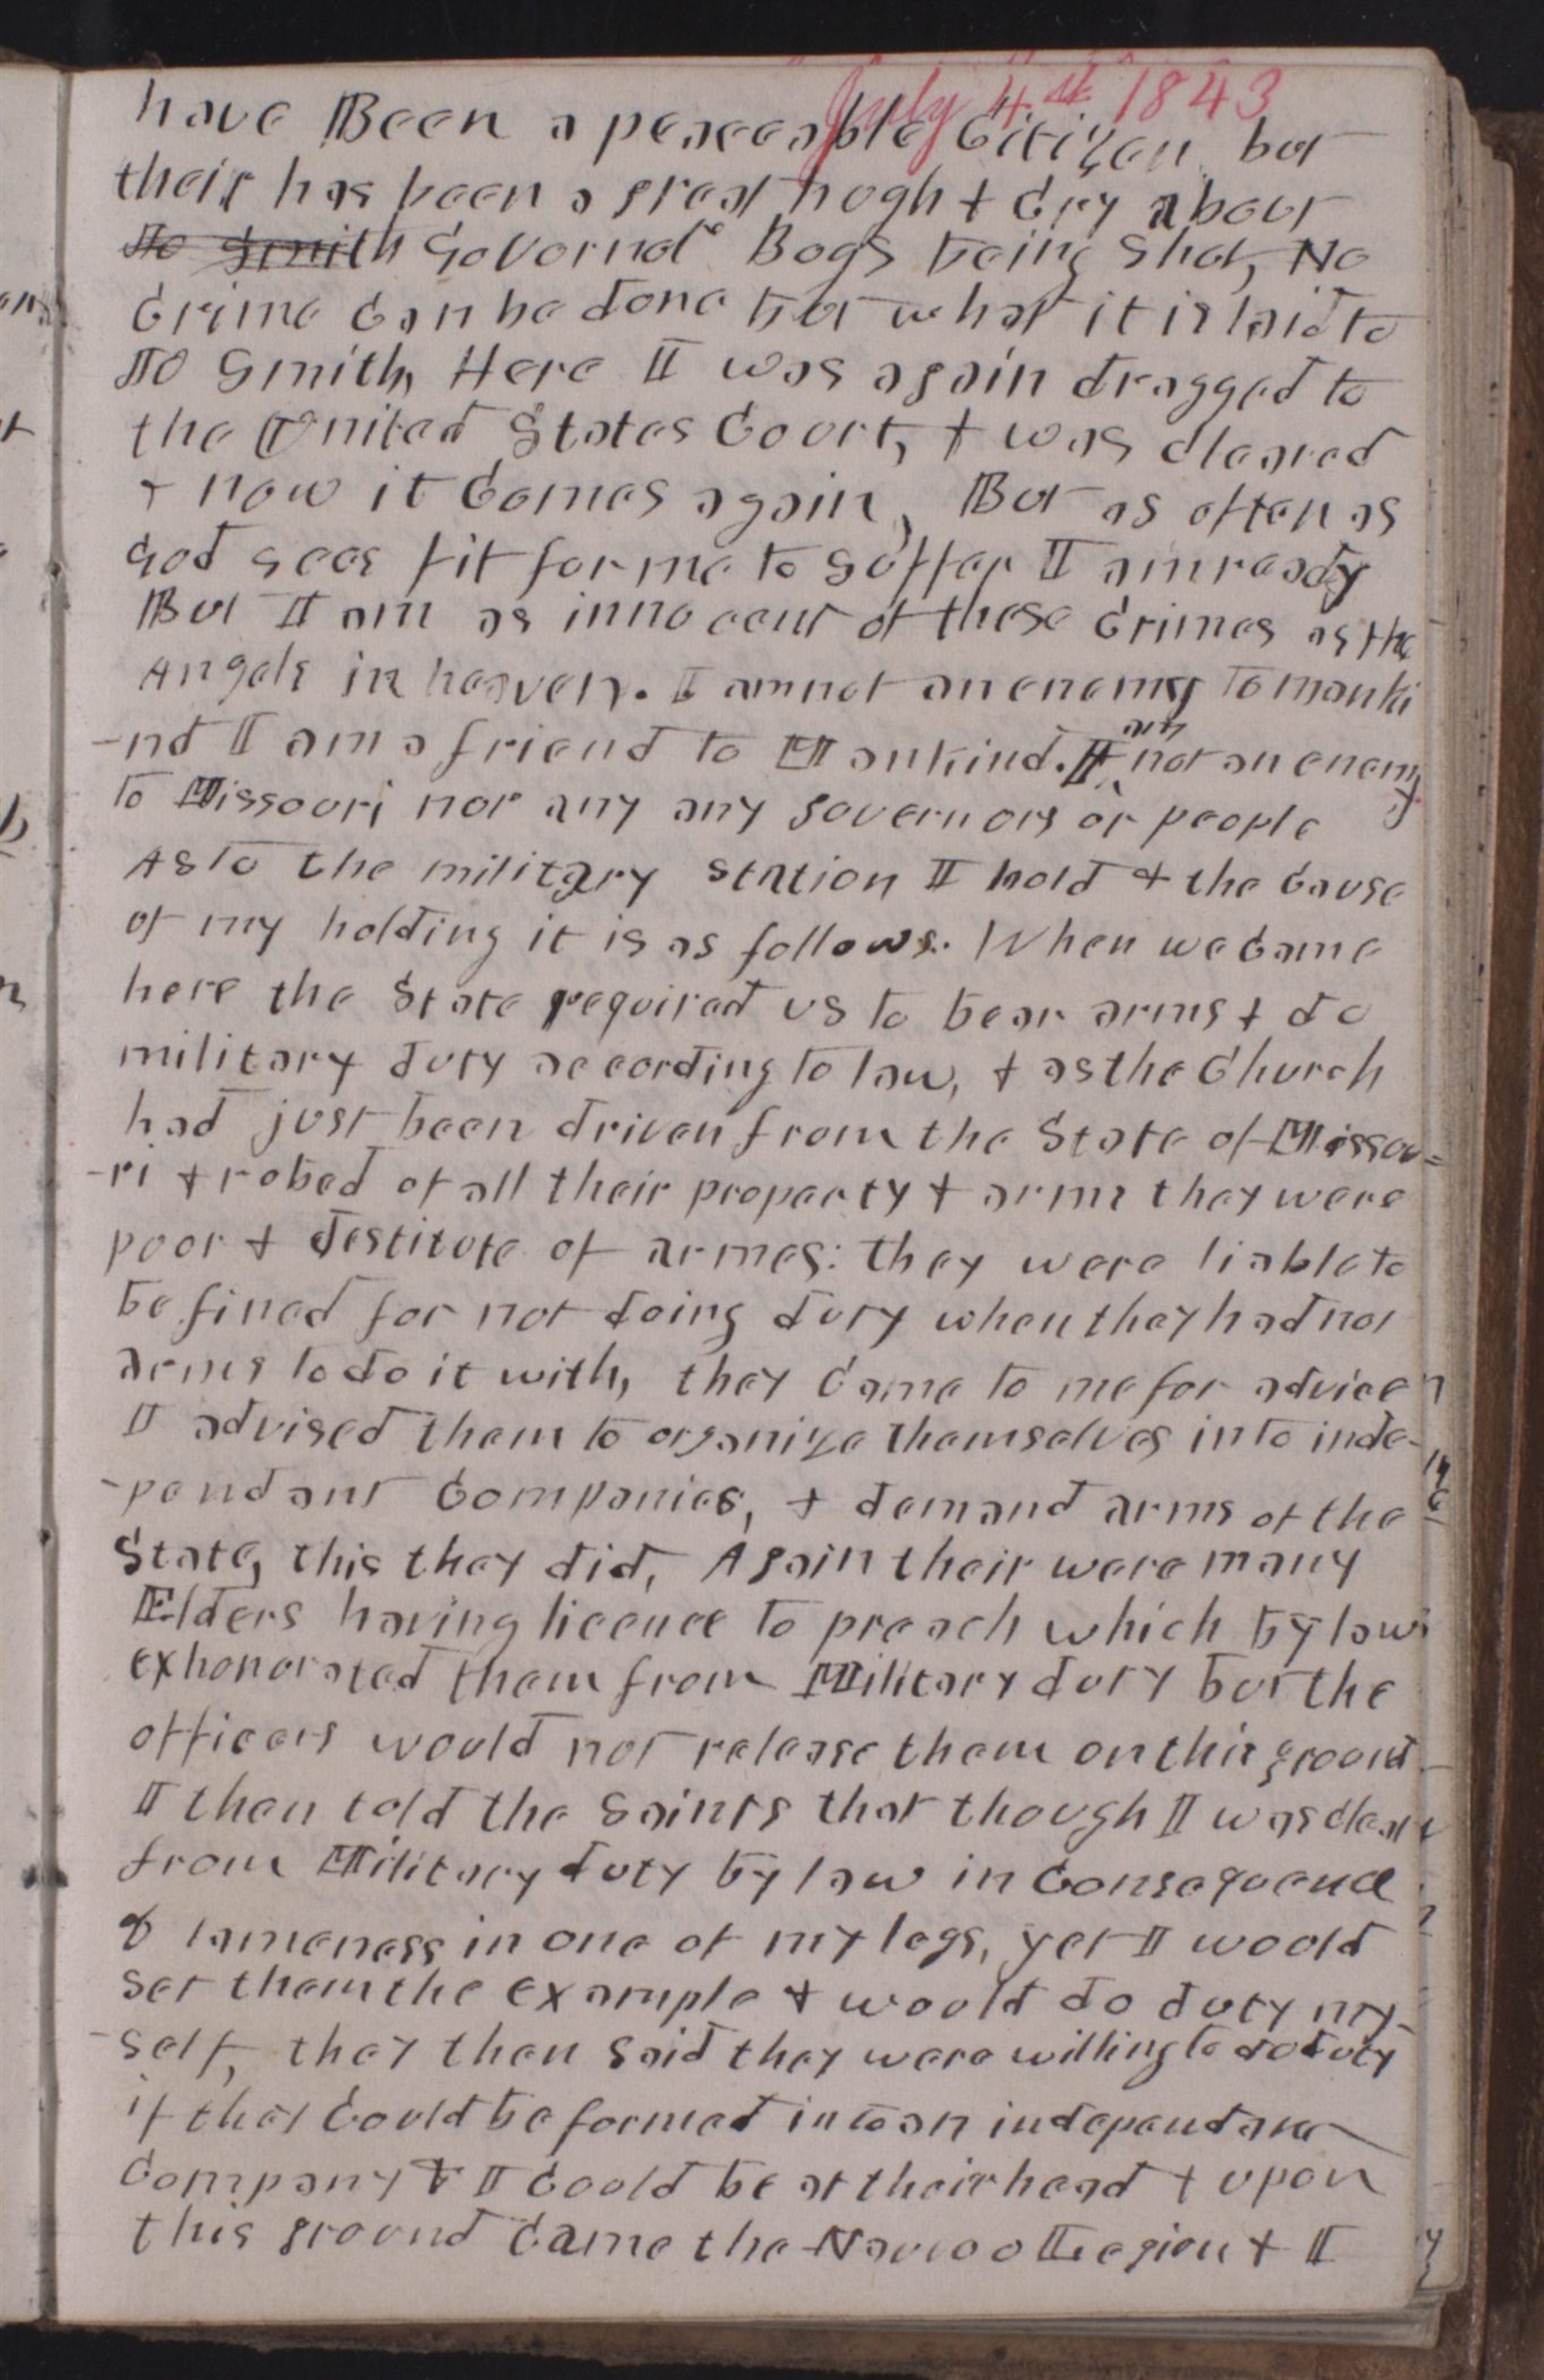 July 4th 1843
have Been a peaceable Citizen but
their has been a great hugh & Cry about
Jo Smith Govornor Bogs being Shot, No
Crime Can be done but what it is laid to
JO Smith, Here I was again dragged to
the United States Court, & was cleared
& now it Comes again, But as often as
God sees fit for me to suffer I am ready
But I am as innocent of these Crimes as the
Angels in heaven. I am not an enemy to manki
-nd I am a friend to Mankind. I am not an enemy
to Missouri nor any any governors or people
As to the military station I hold & the Cause
of my holding it is as follows. When we Came
here the State required us to bear arms & do
military duty according to law, & as the Church
had just been driven from the State of Missou=
-ri & robed of all their propearty & arms they were
poor & destitute of armes: they were liable to
be fined for not doing duty when they had not
arms to do it with, they Came to me for advice
I advised them to organize themselves into inde-
-pendant Companies, & demand arms of the
State, this they did, Again their were many
Elders having licence to preach which by law
exhonorated them from Military duty but the
officers would not release them on this ground
I then told the Saints that though I was clear
from Military duty by law in Consequence
of lameness in one of my legs, yet I would
set them the example & would do duty my-
-self, they then said they were willing to do duty
if they Could be formed into an independant
Company & I Could be at their head & upon
this ground Came the Nauvoo Legion & I